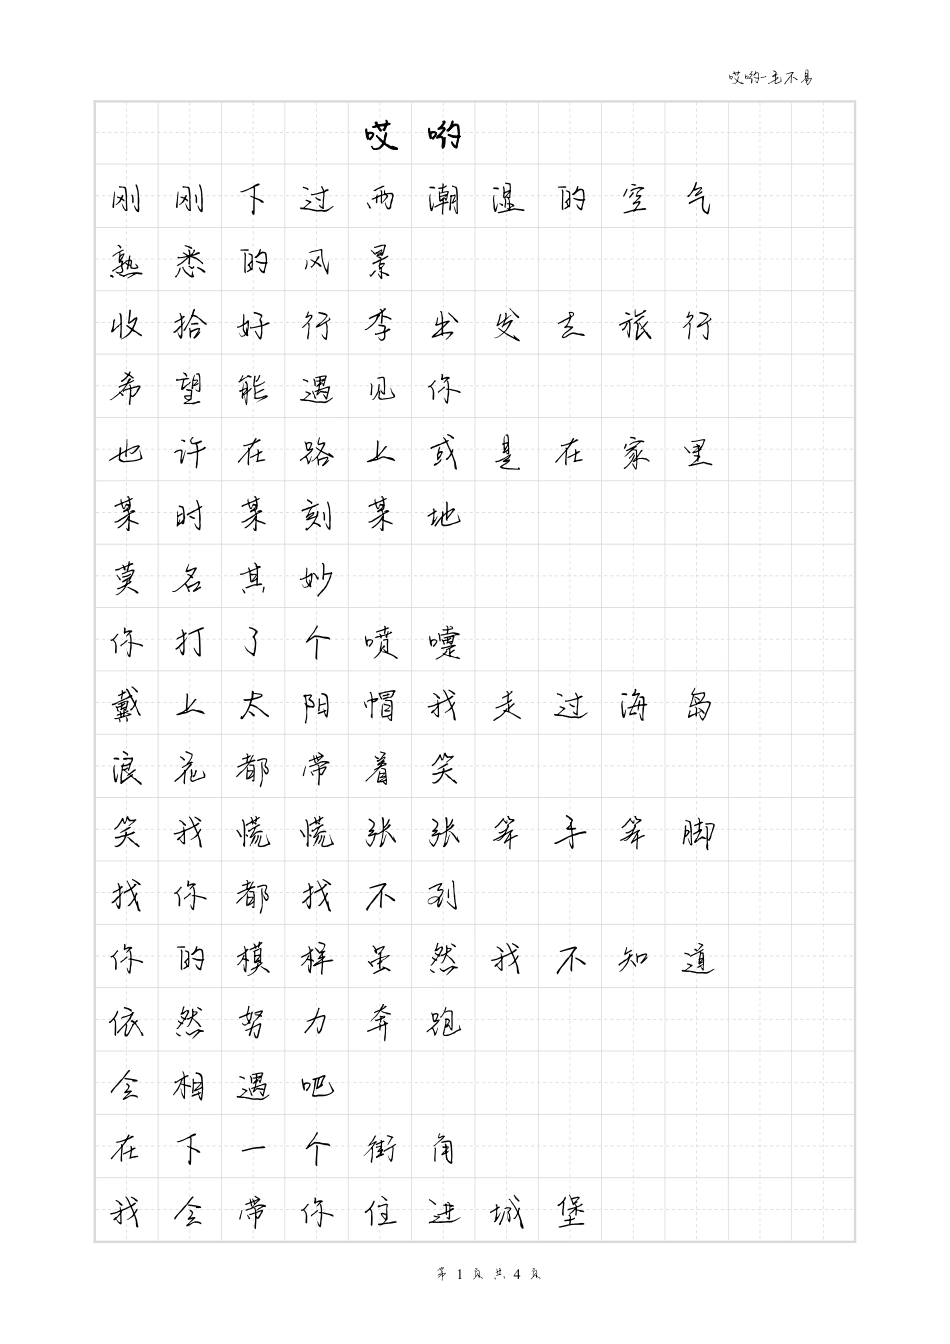 哎哟-毛不易
哎哟
刚刚下过雨潮湿的空气
熟悉的风景
收拾好行李出发去旅行
希望能遇见你
也许在路上或是在家里
某时某刻某地
莫名其妙
你打了个喷嚏
戴上太阳帽我走过海岛
浪花都带着笑
笑我慌慌张张笨手笨脚
找你都找不到
你的模样虽然我不知道
依然努力奔跑
会相遇吧
在下一个街角
我会带你住进城堡
第 1 页 共 4 页